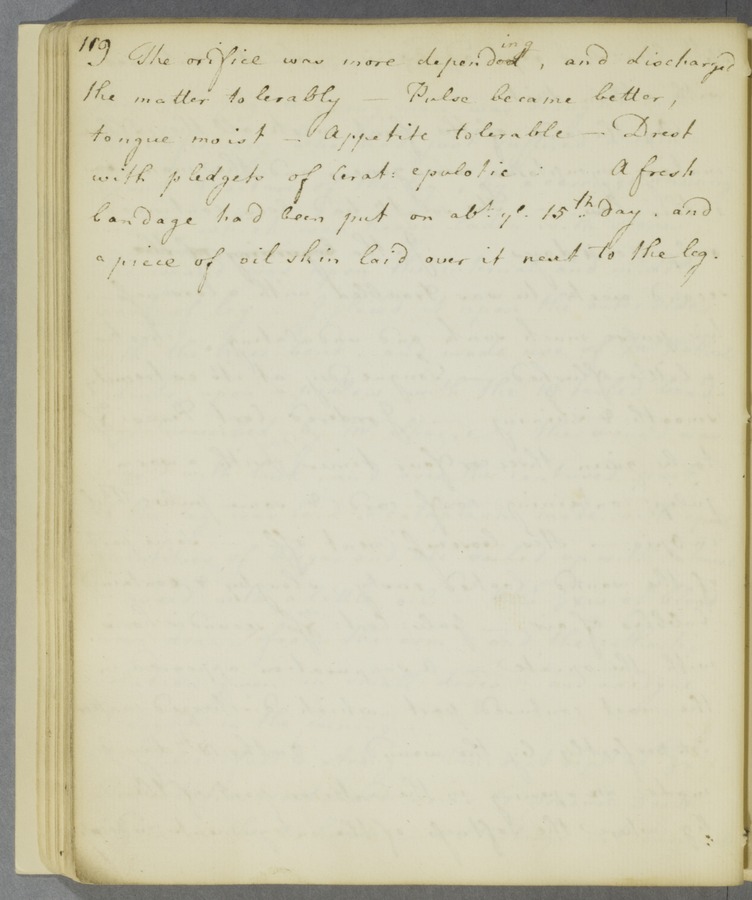 119 The orifice was more depending, and discharged
the matter tolerably — Pulse became better,
tongue moist — Appetite tolerable — Drest
with pledgets of Cerat: epulotic : A fresh
bandage had been put on abt. ye. 15th. day. and
a piece of oil skin laid over it next to the leg.